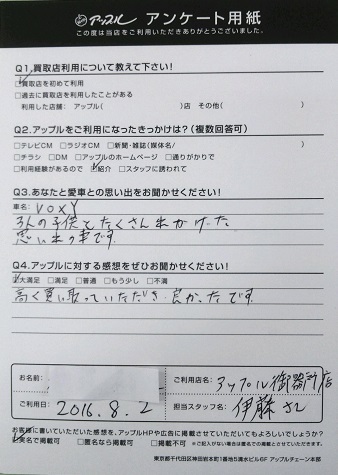 アップル アンケート用紙
この度は当店をご利用いただきありがとうございました。
Q1.買取店利用について教えて下さい!
☑買取店を初めて利用
□過去に買取店を利用したことがある
利用した店舗: アップル( )店 その他( )
Q2.アップルをご利用になったきっかけは?(複数回答可)
□テレビCM □ラジオCM □新聞・雑誌(媒体名/ )
□チラシ □DM □アップルのホームページ □通りがかりで
□利用経験があるので ☑紹介 □スタッフに誘われて
Q3.あなたと愛車との思い出をお聞かせください!
車名: VOXY
3人の子供とたくさん出かけた
思い出の車です。
Q4.アップルに対する感想をぜひお聞かせください!
☑大満足 □満足 □普通 □もう少し □不満
高く買い取っていただき 良かったです。
お名前:
ご利用店名: アップル御器所店
ご利用日: 2016.8.2
担当スタッフ名: 伊藤さん
お客様に書いていただいた感想を、アップルHPや広告に掲載させていただいてもよろしいでしょうか?
☑実名で掲載可 □匿名なら掲載可 □掲載不可 ※ご記入がない場合は匿名での掲載とさせていただきます。
東京都千代田区神田岩本町1番地5清水ビル6F アップルチェーン本部